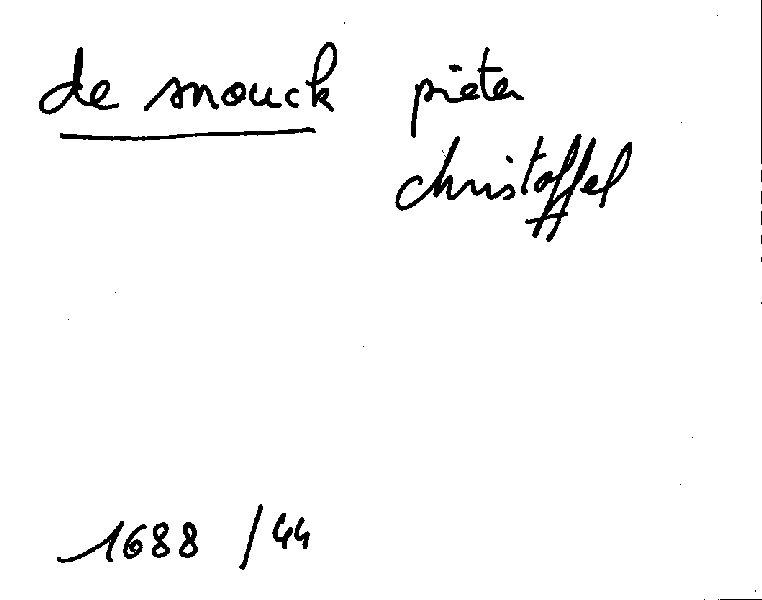 de snouck pieter
christoffel
1688 /44